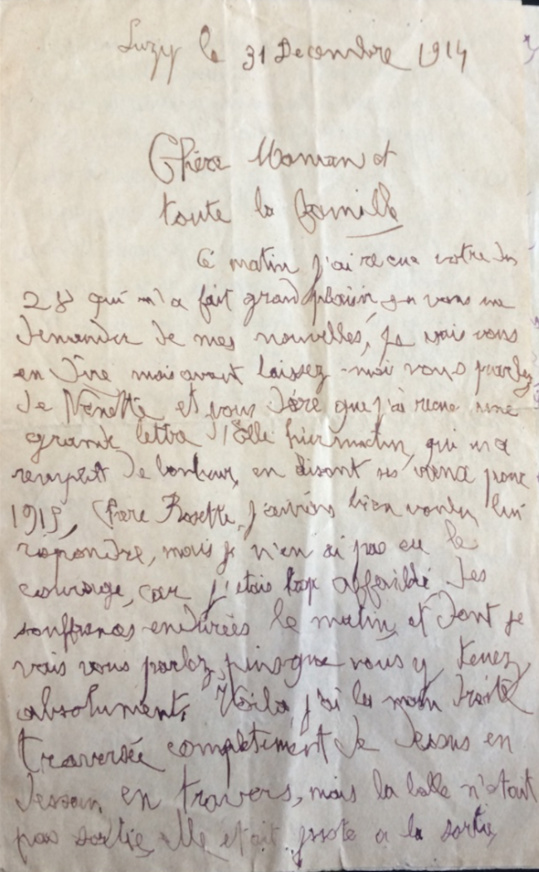 Suzy le 31 Decembre 1914
Chère Maman et
toute la famille
Ce matin j'ai recue votre du
28 qui m'a fait grand plaisir, vous me
demander de mes nouvelles, je vais vous
en dire mais avant laissez-moi vous parlez
de Nénette et vous dire que j'ai recue une
grande lettre d'Elle hier matin, qui m'a
remplit de bonheur, en disant ses voeux pour
1915, Chère Rosette, j'aurais bien voulu lui
répondre, mais je n'en ai pas eu le
courage, car j'étais trop affaiblé des
souffrances endurées le matin, et dont je
vais vous parlez, puisque vous y tenez
absolument, Voilà j'ai la main droite
traversée complètement de dessus en
dessous, en travers, mais la balle n'étant
pas sortie, elle était juste a la sortie,